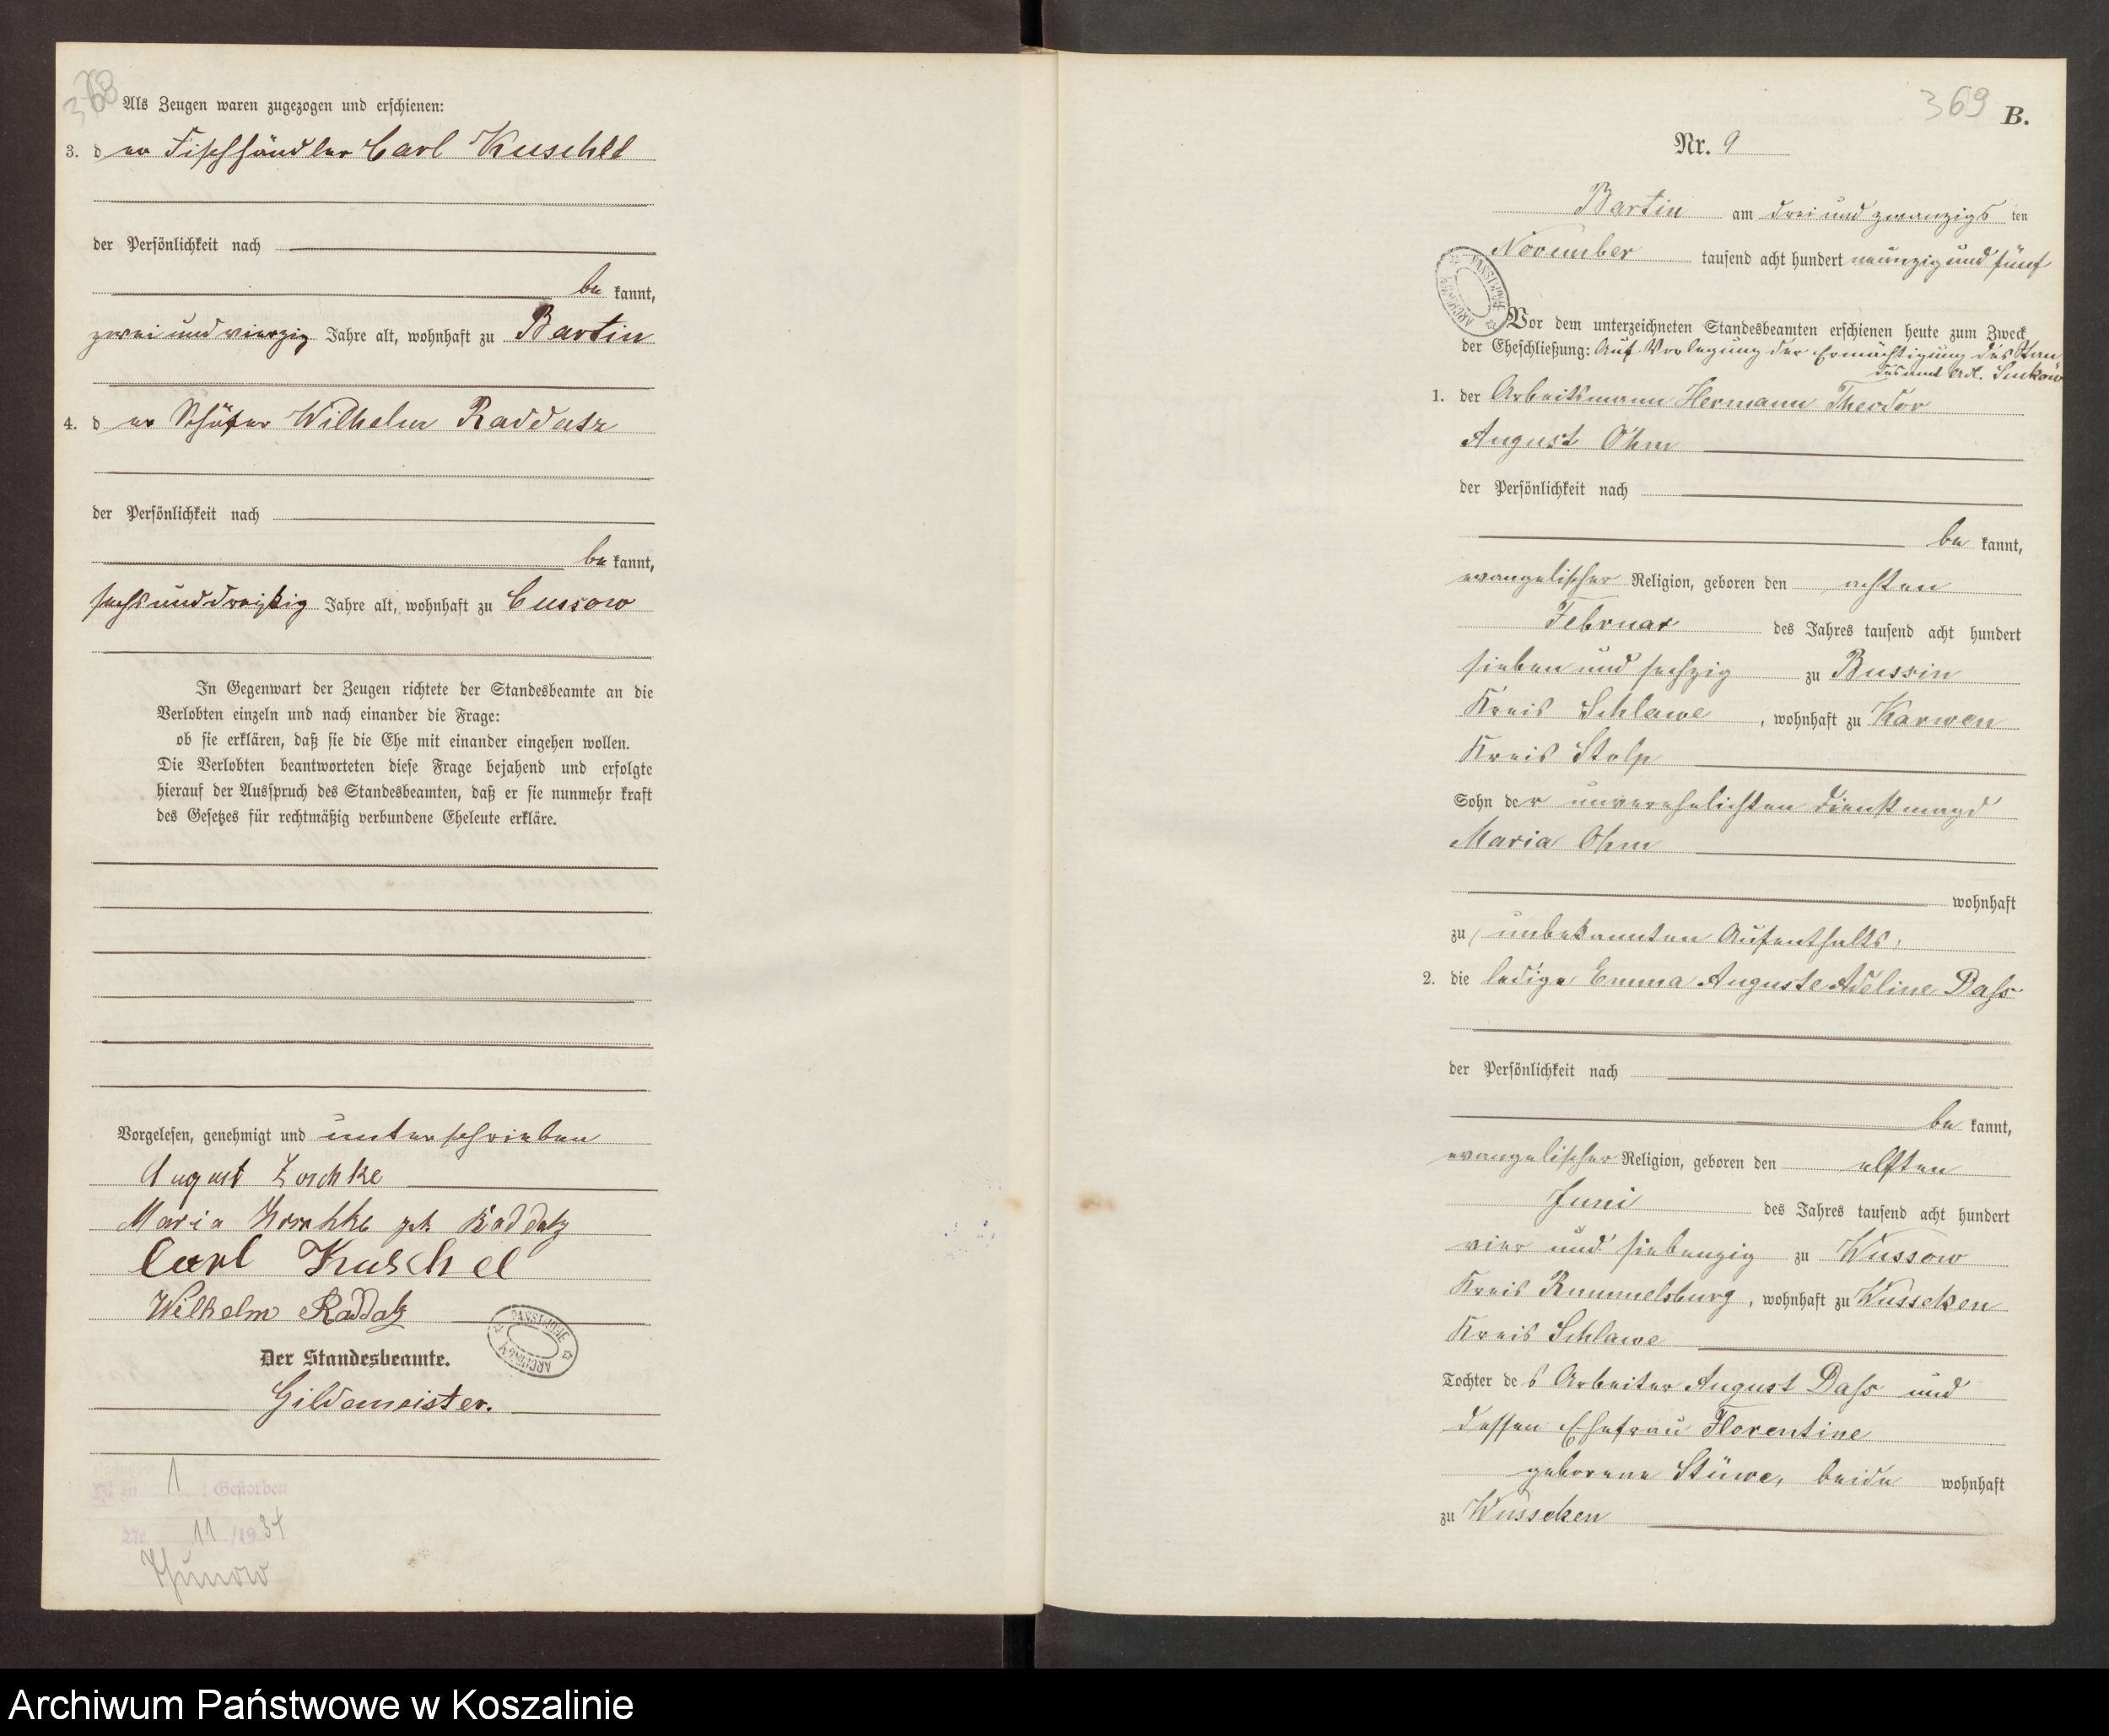 368
Als Zeugen waren zugezogen und erschienen:
3. der Fischhändler Carl Kuschel
der Persönlichkeit nach
bekannt,
zwei und vierzig Jahre alt, wohnhaft zu Bartin
4. der Schäfer Wilhelm Raddatz
der Persönlichkeit nach
bekannt,
sechs und dreißig Jahre alt, wohnhaft zu Cussow
In Gegenwart der Zeugen richtete der Standesbeamte an die
Verlobten einzeln und nach einander die Frage:
ob sie erklären, daß sie die Ehe mit einander eingehen wollen.
Die Verlobten beantworteten diese Frage bejahend und erfolgte
hierauf der Ausspruch des Standesbeamten, daß er sie nunmehr kraft
des Gesetzes für rechtmäßig verbundene Eheleute erkläre.
Vorgelesen, genehmigt und unterschrieben
August
Maria geb. Raddatz
Carl Kuschel
Wilhelm Raddatz
PANSTWOWE ARCHIWUM
Der Standesbeamte.
Gildemeister.
zu 1 : Gestorben
Nr. 11/1934
369
B.
Nr. 9
Bartin am drei und zwanzigsten
November tausend acht hundert neunzig und fünf
PANSTWOWE ARCHIWUM
Vor dem unterzeichneten Standesbeamten erschienen heute zum Zweck
der Eheschließung: Auf Vorlegung der Ermächtigung des Stan
desamt Adl. Suckow
1. der Arbeitsmann Hermann Theodor
August Ohm
der Persönlichkeit nach
bekannt,
evangelischer Religion, geboren den achten
Februar des Jahres tausend acht hundert
sieben und sechzig zu Bussin
Kreis Schlawe, wohnhaft zu Karwen
Kreis Stolp
Sohn der unverehelichten Dienstmagd
Maria Ohm
wohnhaft
zu unbekannten Aufenthalts.
2. die ledige Emma Auguste Adeline Dass
der Persönlichkeit nach
bekannt,
evangelischer Religion, geboren den elften
Juni des Jahres tausend acht hundert
vier und siebenzig zu Wussow
Kreis Rummelsburg, wohnhaft zu Wusseken
Kreis Schlawe
Tochter des Arbeiter August Dass und
dessen Ehefrau Florentine
geborene Stüwe, beide wohnhaft
zu Wusseken
Archiwum Państwowe w Koszalinie